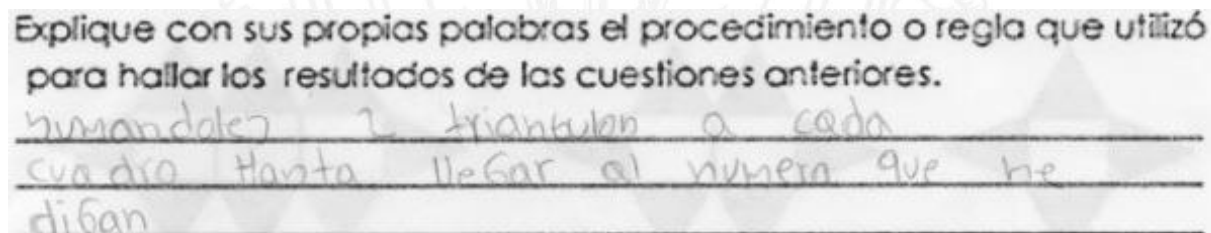 Explique con sus propias palabras el procedimiento o regla que utilizó
para hallar los resultados de las cuestiones anteriores.
sumandoles 2 triangulos a cada
cuadro Hasta lleGar al numero que me
diGan